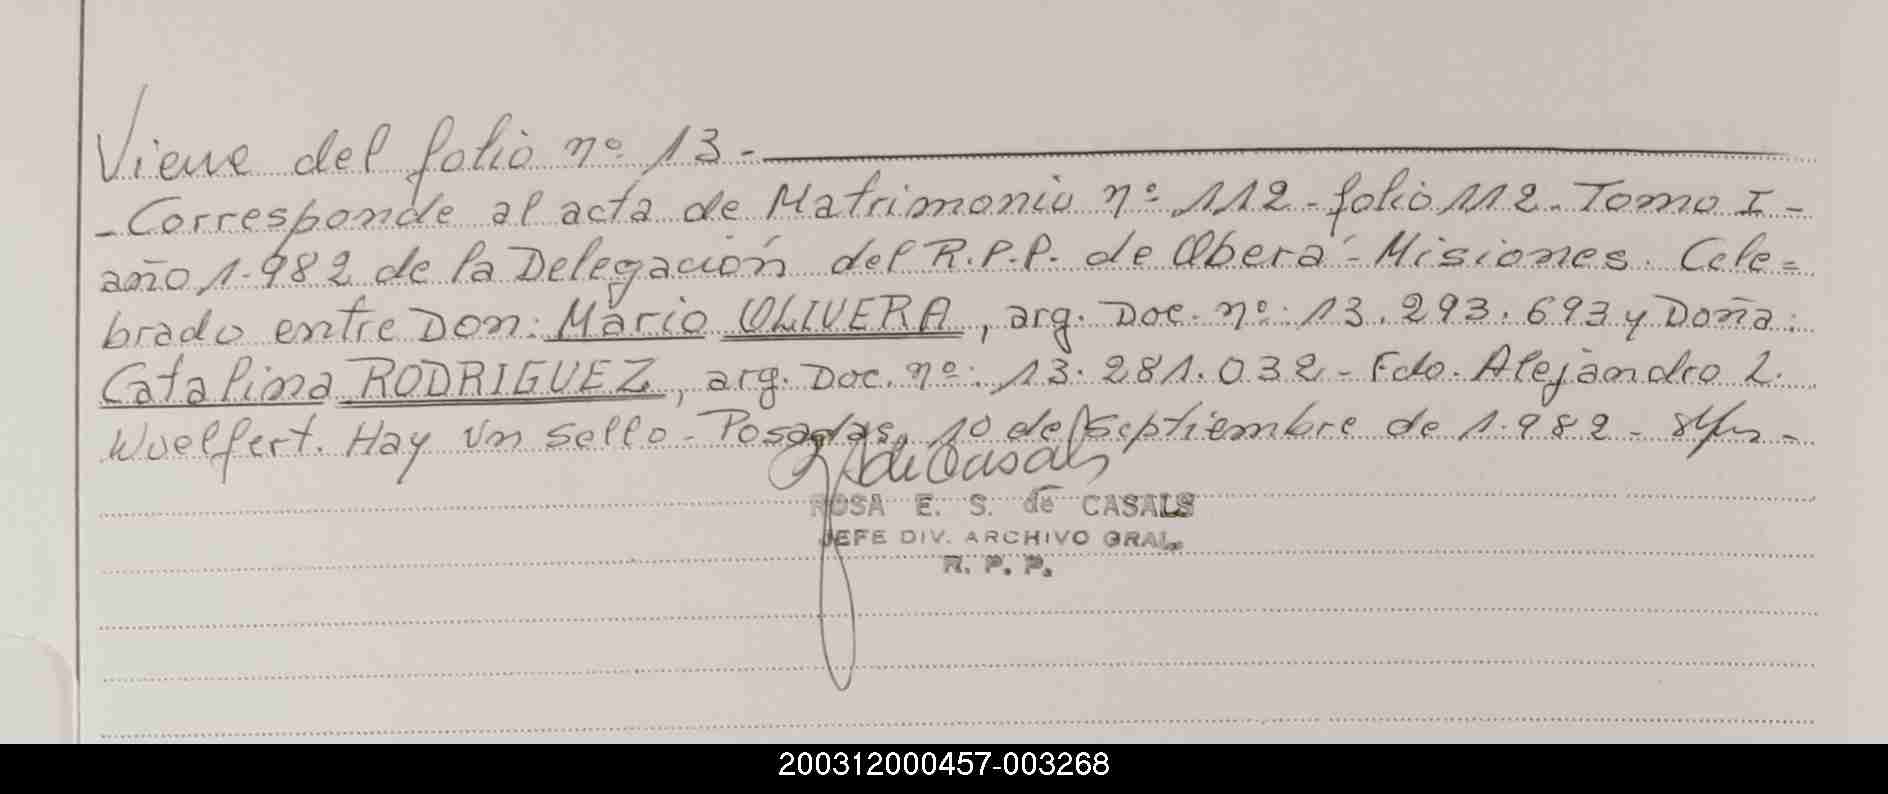 Viene del folio nº 13 -
- Corresponde al acta de Matrimonio nº 112 - folio 112 - Tomo I -
año 1.982 de la Delegación del R.P.P. de Oberá - Misiones. Cele=
brado entre Don: Mario OLIVERA, arg. Doc. nº: 13.293.693 y Doña:
Catalina RODRIGUEZ, arg. Doc. nº: 13.281.032 - Fdo. Alejandro L.
Wuelfert. Hay un sello - Posadas, 10 de Septiembre de 1.982 -
de Casals
ROSA E. S. de CASALS
JEFE DIV. ARCHIVO GRAL.
R. P. P.
200312000457-003268